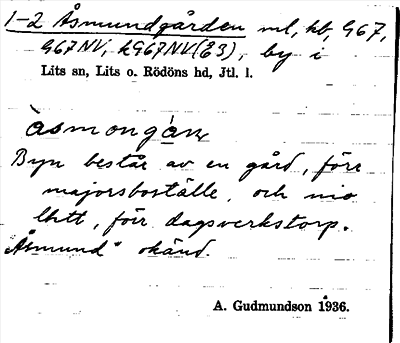 1-2 Åsmundgården ml, hb, G67,
G67NV, kG67NV(Å3), by i
Lits sn, Lits o. Rödöns hd, Jtl. l.
àsmongá̀ɹn
Byn består av en gård, förr
majorsboställe, och nio
lhtt, förr dagsverkstorp.
"Åsmund" okänd.
A. Gudmundson 1936.